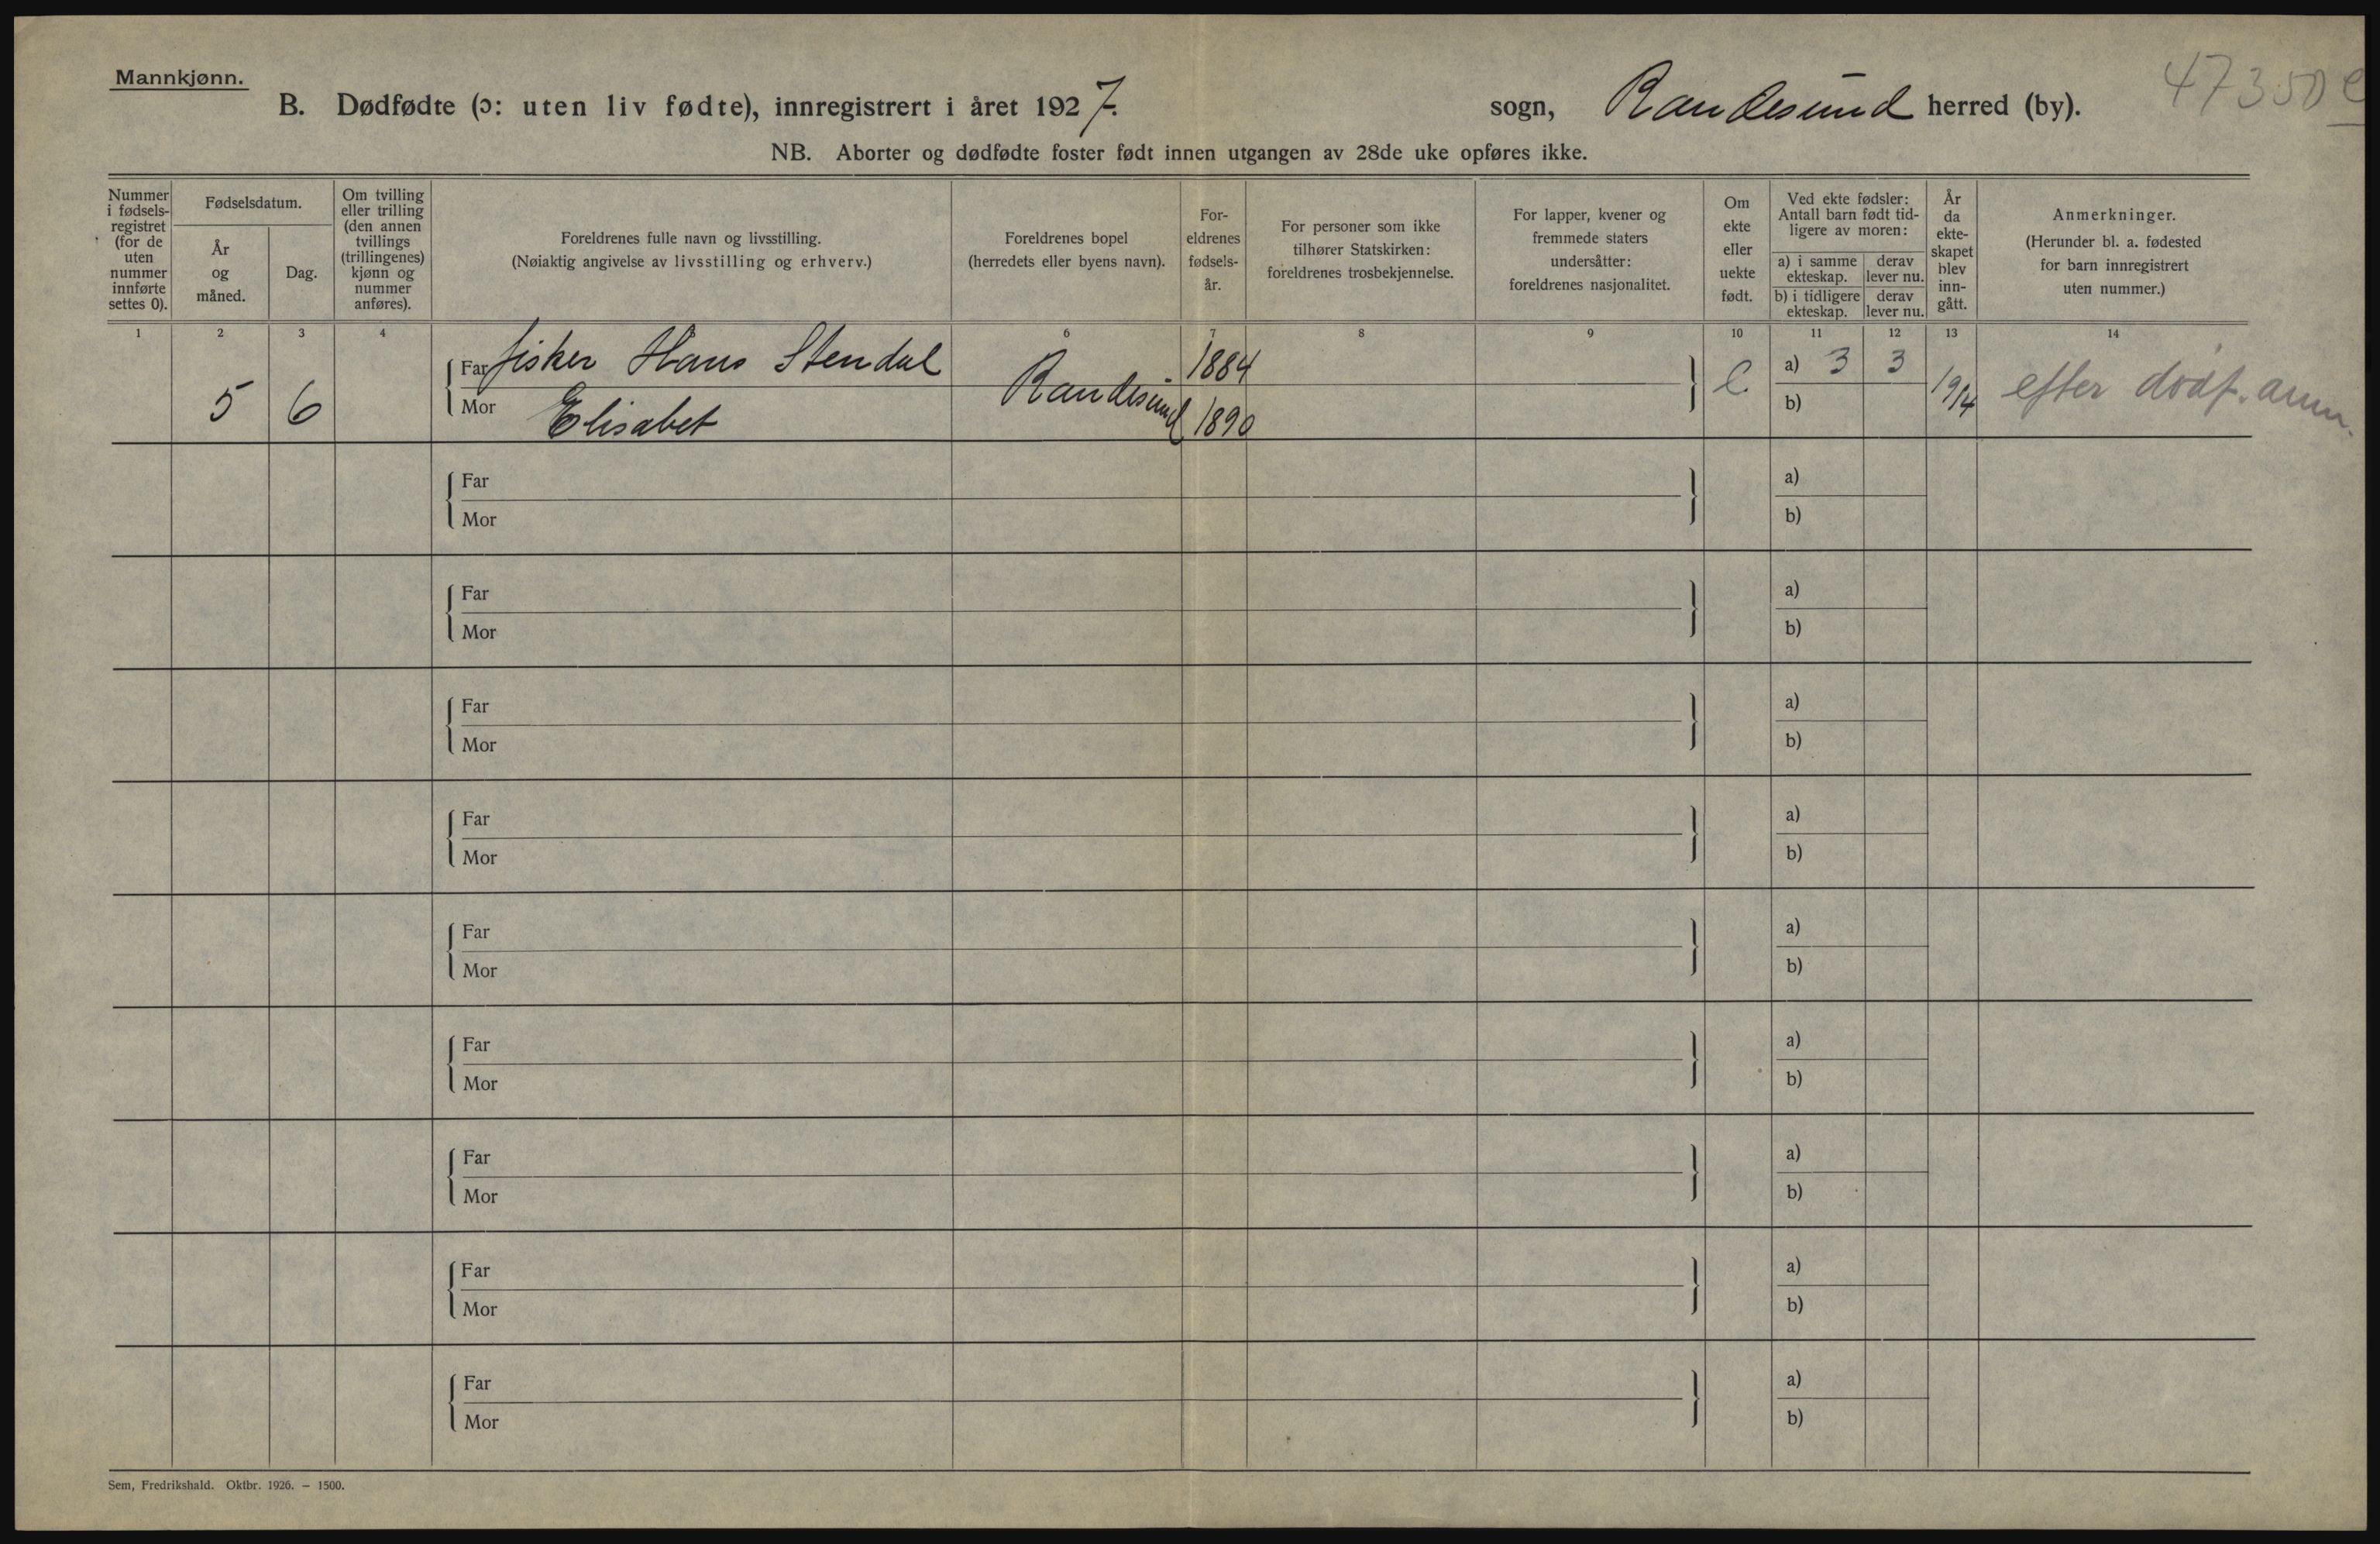 Mannkjønn.
47350 e
B. Dødfødte (ɔ: uten liv fødte), innregistrert i året 1927. sogn, Randesund herred (by).
NB. Aborter og dødfødte foster født innen utgangen av 28de uke opføres ikke.
Nummer i fødselsregistret (for de uten nummer innførte settes 0).
Fødselsdatum.
År og måned.
Dag.
Om tvilling eller trilling (den annen tvillings (trillingenes) kjønn og nummer anføres).
Foreldrenes fulle navn og livsstilling.
(Nøiaktig angivelse av livsstilling og erhverv.)
Foreldrenes bopel
(herredets eller byens navn).
Foreldrenes fødselsår.
For personer som ikke tilhører Statskirken: foreldrenes trosbekjennelse.
For lapper, kvener og fremmede staters undersåtter: foreldrenes nasjonalitet.
Om ekte eller uekte født.
Ved ekte fødsler: Antall barn født tidligere av moren:
a) i samme ekteskap. derav lever nu.
b) i tidligere ekteskap. derav lever nu.
År da ekteskapet blev inngått.
Anmerkninger.
(Herunder bl. a. fødested for barn innregistrert uten nummer.)
1 2 3 4 6 7 8 9 10 11 12 13 14
Far fisker Hans Stendal 1884 a) 3 3
5 6 Randesund e 19/4 efter dødf. anm.
Mor Elisabet 1890 b)
Far a)
Mor b)
Far a)
Mor b)
Far a)
Mor b)
Far a)
Mor b)
Far a)
Mor b)
Far a)
Mor b)
Far a)
Mor b)
Far a)
Mor b)
Far a)
Mor b)
Sem, Fredrikshald. Oktbr. 1926. – 1500.